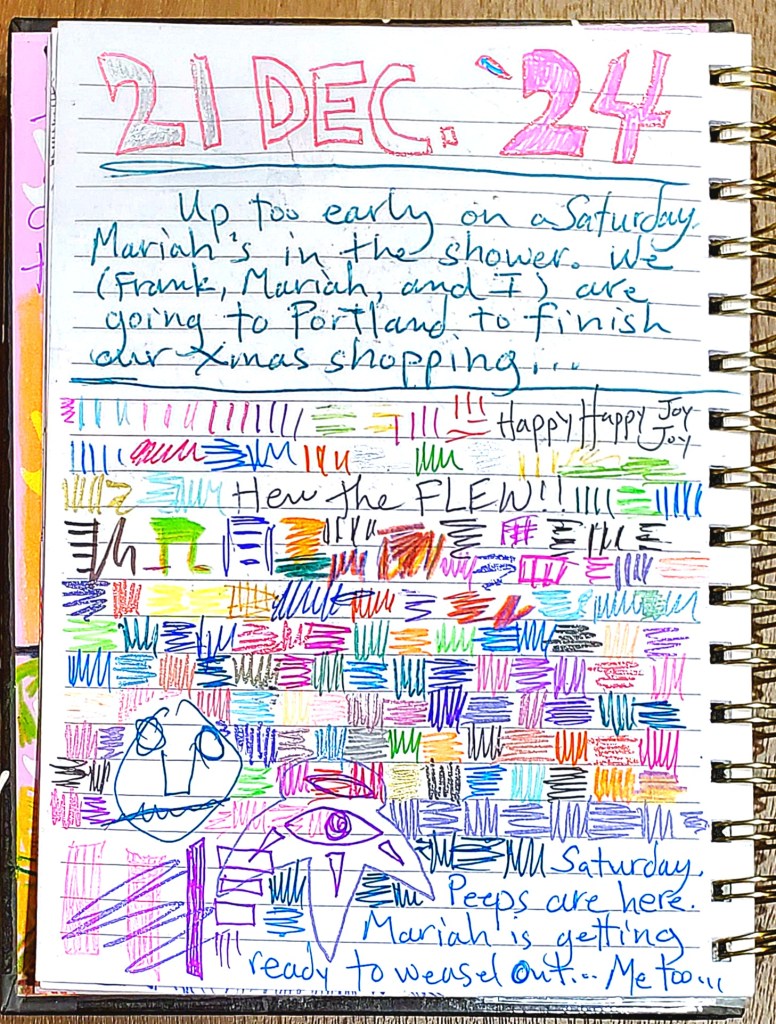 21 DEC. '24
Up too early on a Saturday.
Mariah's in the shower. We
(Frank, Mariah, and I) are
going to Portland to finish
our Xmas shopping...
Happy Happy Joy
Joy
Hew the FLEW!!
Saturday.
Peeps are here.
Mariah is getting
ready to weasel out... Me too...